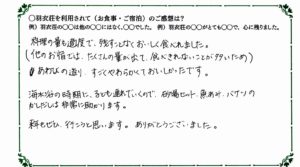 ○羽衣荘を利用されて（お食事・ご宿泊）のご感想は？
例）羽衣荘の○○は他の○○にはなく、○○でした。 例）羽衣荘の○○がとても○○で、心に残りました。
料理の量も適度で、残すことなくおいしく食べれました。
（他のお宿では、たくさんの量が出て、食べきれないことが多いため）
あわびの造り、すごくやわらかくておいしかったです。
海水浴の時期に、子ども連れでいくので、砂場セット、魚あみ、バケツの
かしだしは非常に助かります。
来年もぜひ、行こうと思います。ありがとうございました。